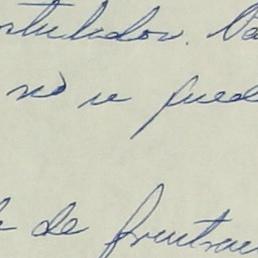 stulados. Va
no se pued
de frustrac